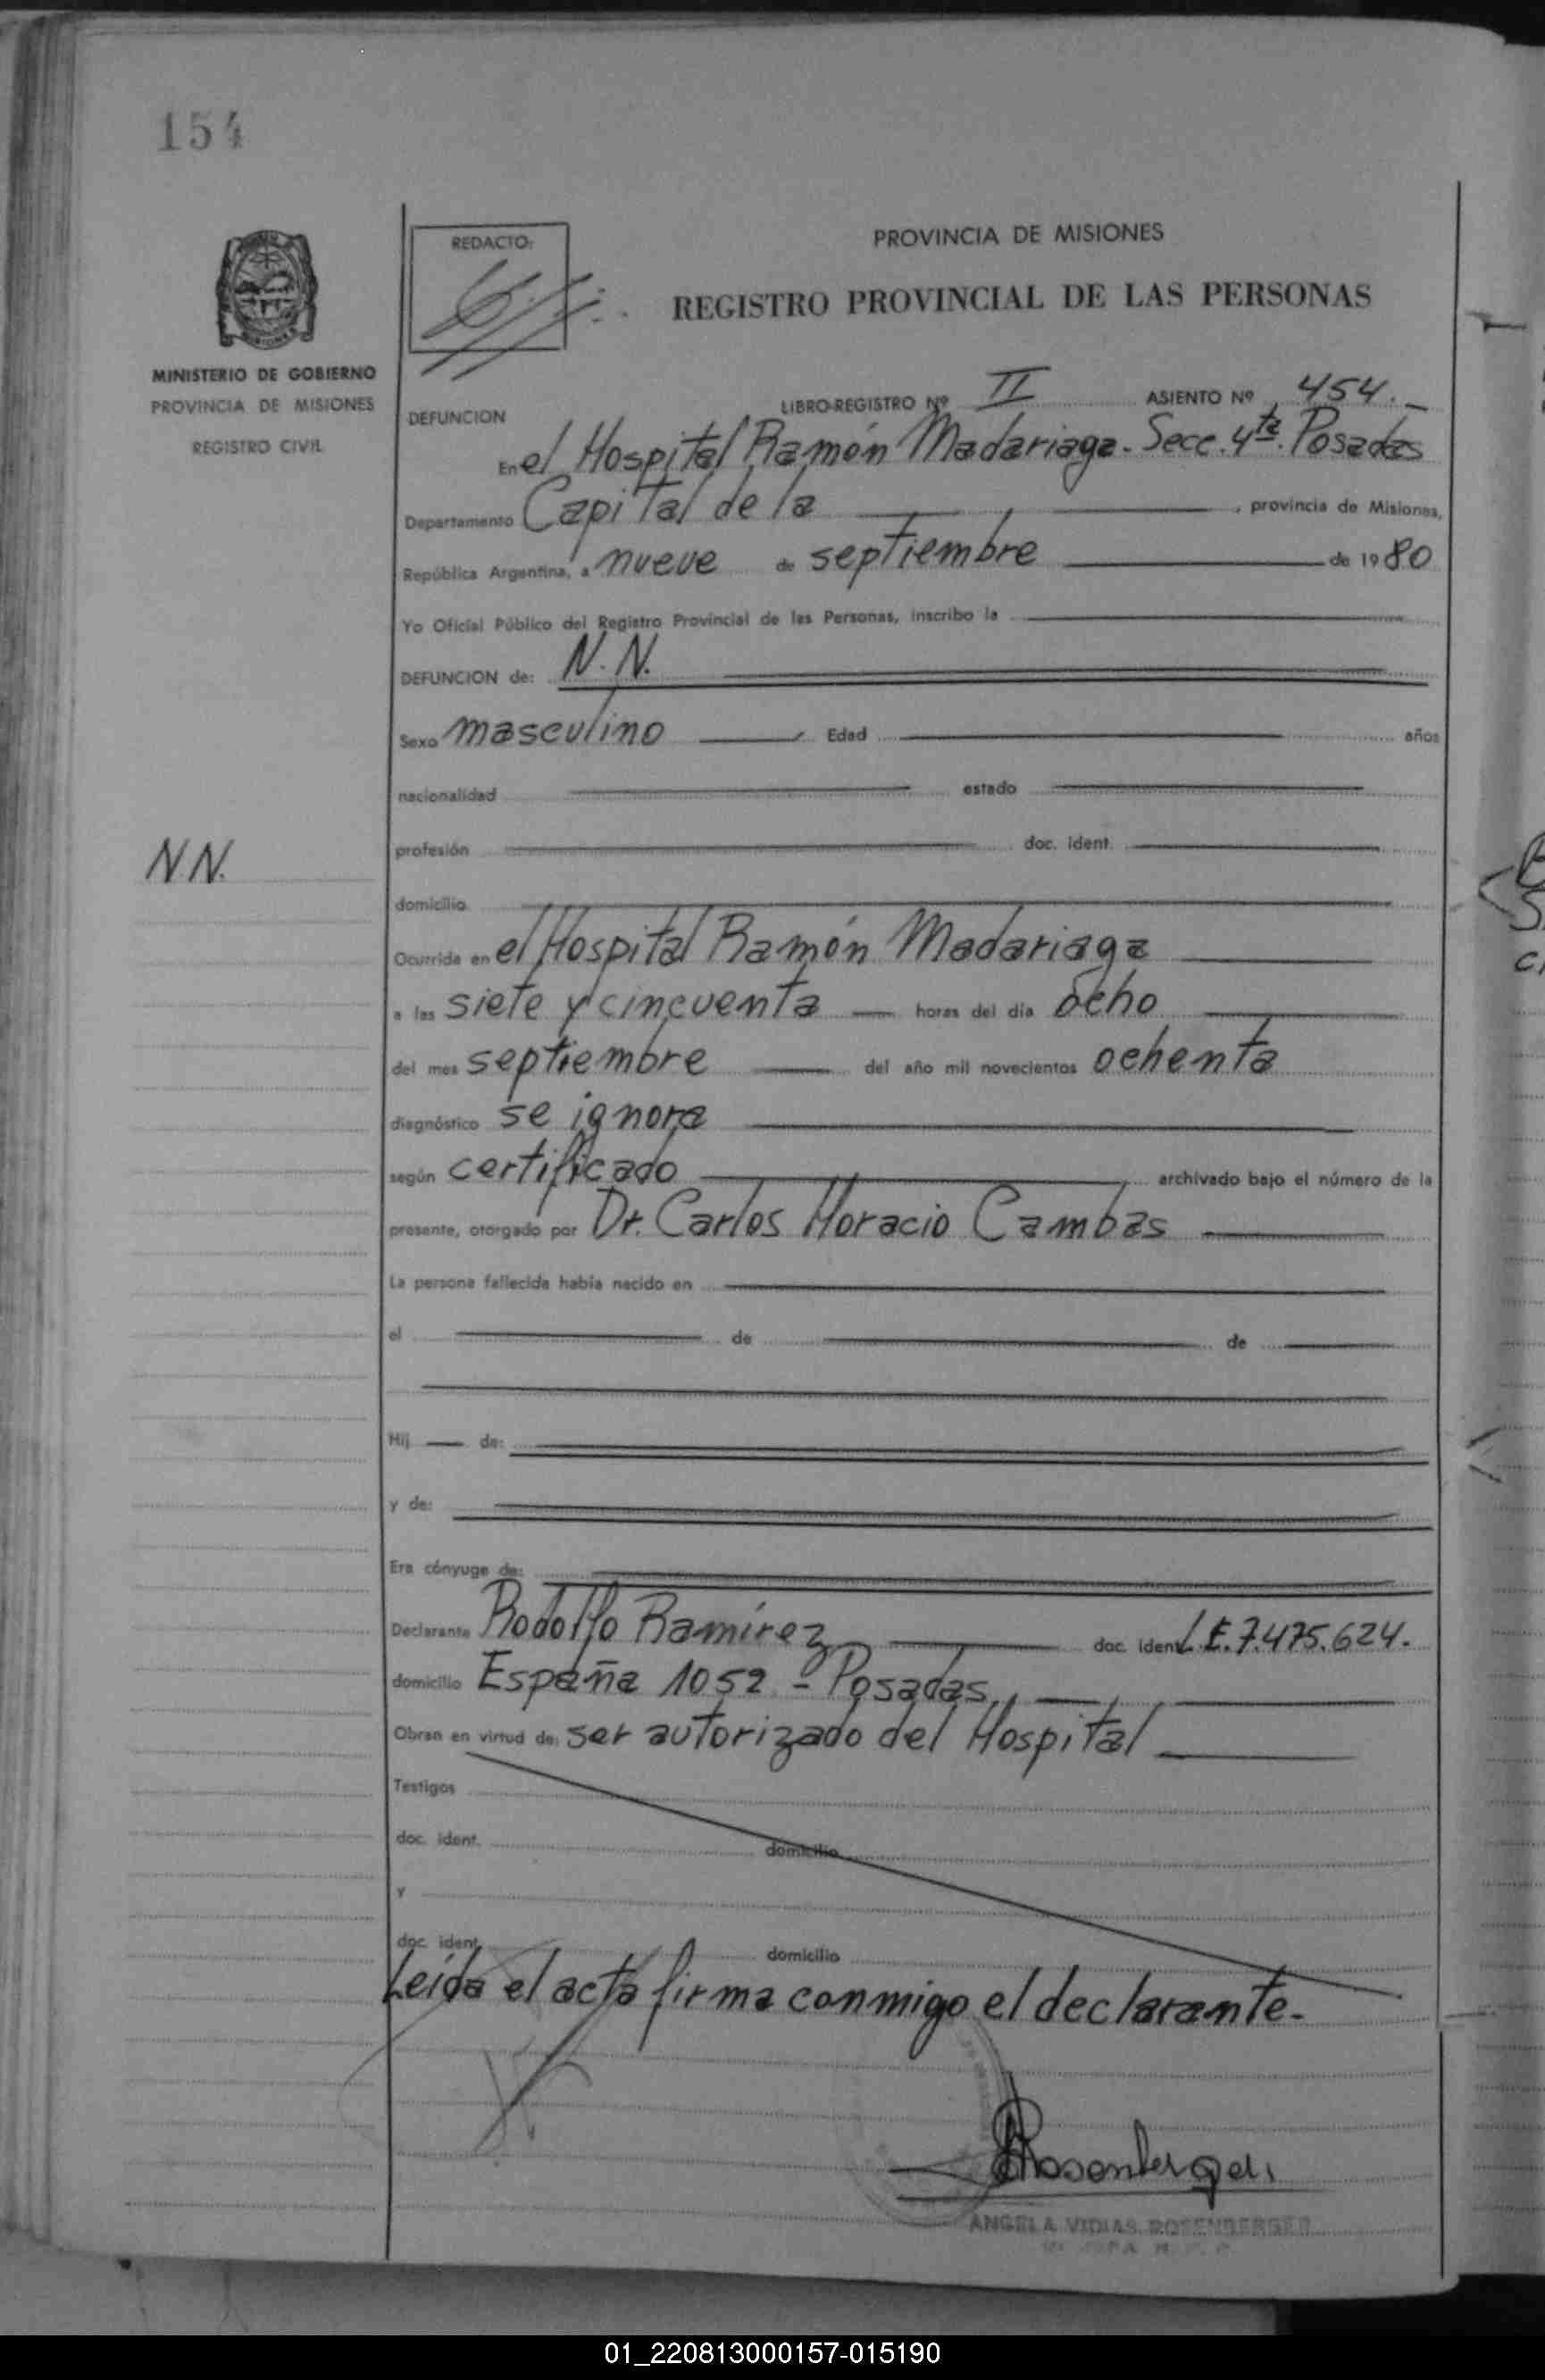 154
REDACTO:
PROVINCIA DE MISIONES
REGISTRO PROVINCIAL DE LAS PERSONAS
MINISTERIO DE GOBIERNO
PROVINCIA DE MISIONES
REGISTRO CIVIL
DEFUNCION LIBRO-REGISTRO Nº II ASIENTO Nº 454.-
En el Hospital Ramón Madariaga - Secc. 4ta. Posadas
Departamento Capital de la , provincia de Misiones,
República Argentina, a nueve de septiembre de 1980
Yo Oficial Público del Registro Provincial de las Personas, inscribo la
DEFUNCION de: N.N.
Sexo masculino Edad años
nacionalidad estado
N.N.
profesión doc. ident.
domicilio
Ocurrida en el Hospital Ramón Madariaga
a las siete y cincuenta horas del día ocho
del mes septiembre del año mil novecientos ochenta
diagnóstico se ignora
según certificado archivado bajo el número de la
presente, otorgado por Dr. Carlos Horacio Cambas
La persona fallecida había nacido en
el de de
Hij de:
y de:
Era cónyuge de:
Declarante Rodolfo Ramírez doc. ident. L.E. 7.475.624.
domicilio España 1052 - Posadas,
Obran en virtud de: ser autorizado del Hospital
Testigos
doc. ident. domicilio
y
doc. ident. domicilio
Leída el acta firma conmigo el declarante.-
ANGELA VIDIAS ROSENBERGER
01_220813000157-015190